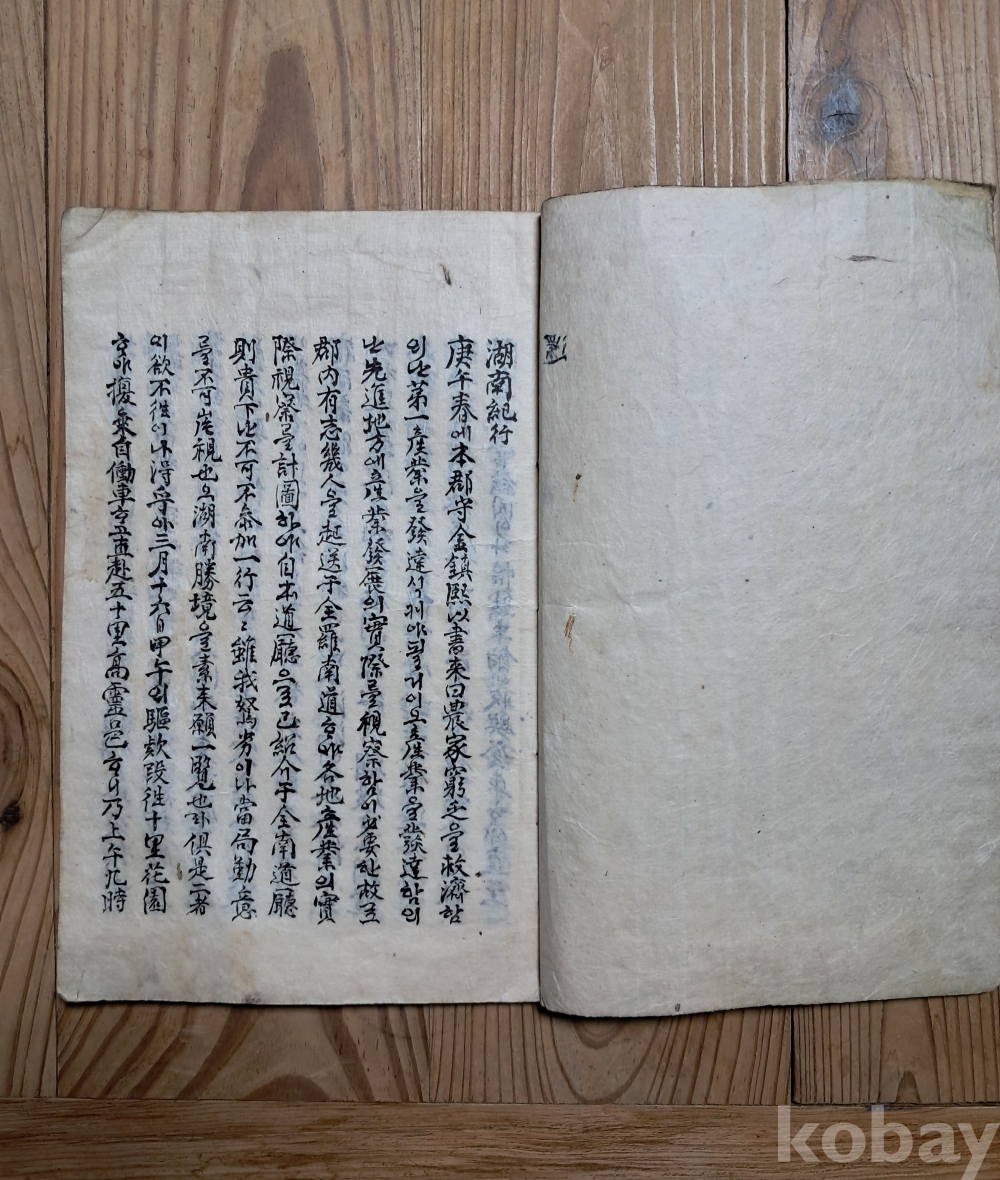 湖南記行
庚午春에本郡守金鎭熙以書來曰農家窮乏을救濟함
인단第一産業을發達식혀야될거이오産業을發達함의
난先進地方에産業發展의實際를視察함이必要한故로
郡內有志幾人을起送于全羅南道하야各地産業의實
際視察를計圖하야自本道廳으로已紹介于全南道廳
則貴下난不可不參加一行云〻雖我駑劣이나當局勸意
를不可岸視也오湖南勝境을素來願一覽也라俱是二者
이欲不徃이나得乎아三月十六日甲午의驅欵段徃十里花園
하야搭乘自働車하고直赴五十里高靈邑하니乃上午九時
kobay